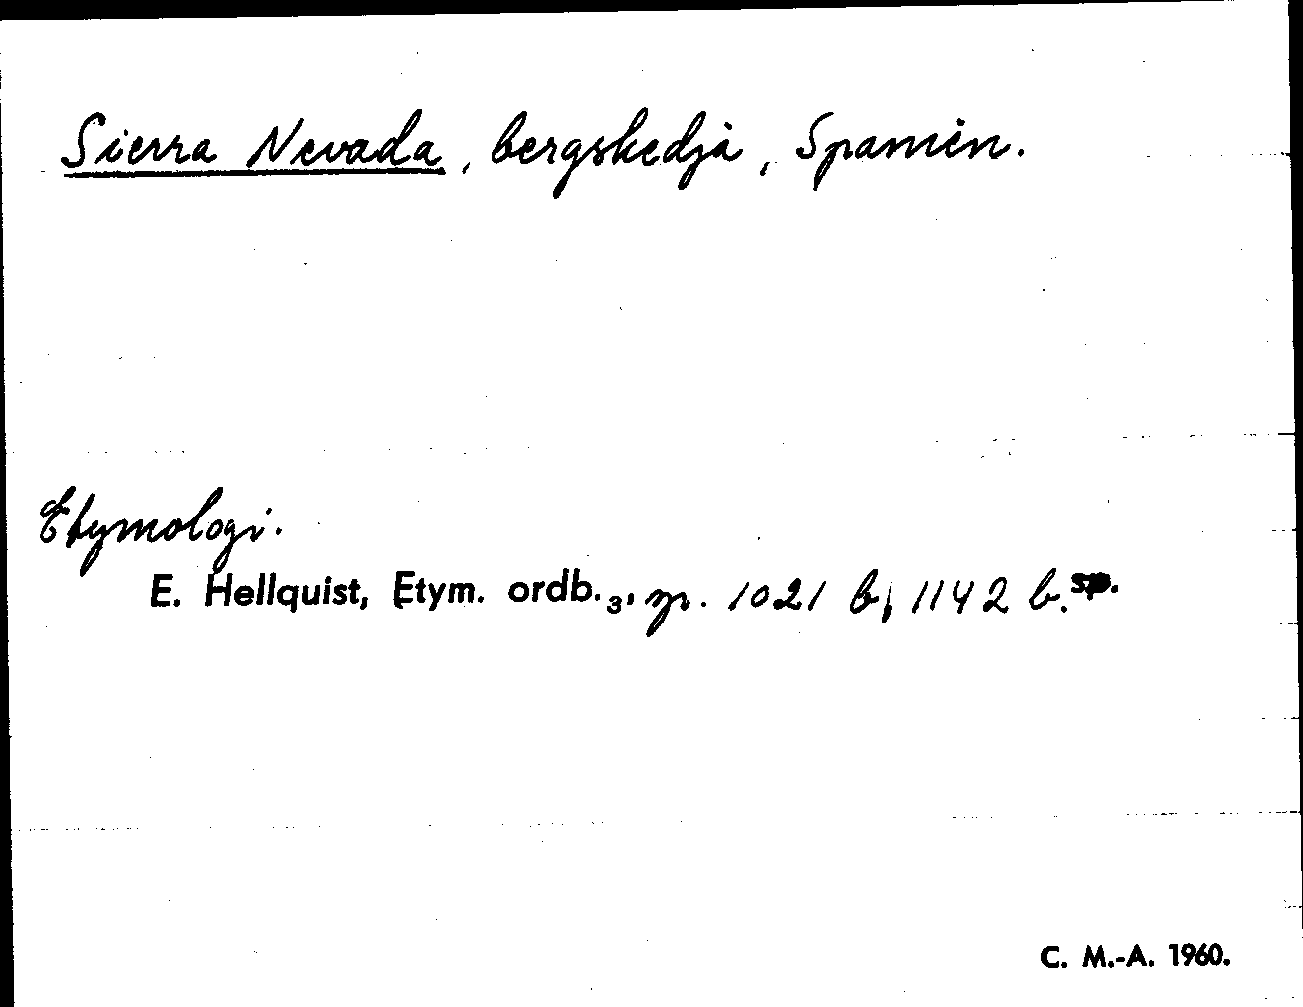 Sierra Nevada, bergskedja, Spanien.
Etymologi.
E. Hellquist, Etym. ordb.3, 1021 b, 1142 b. sp.
C. M.-A. 1960.